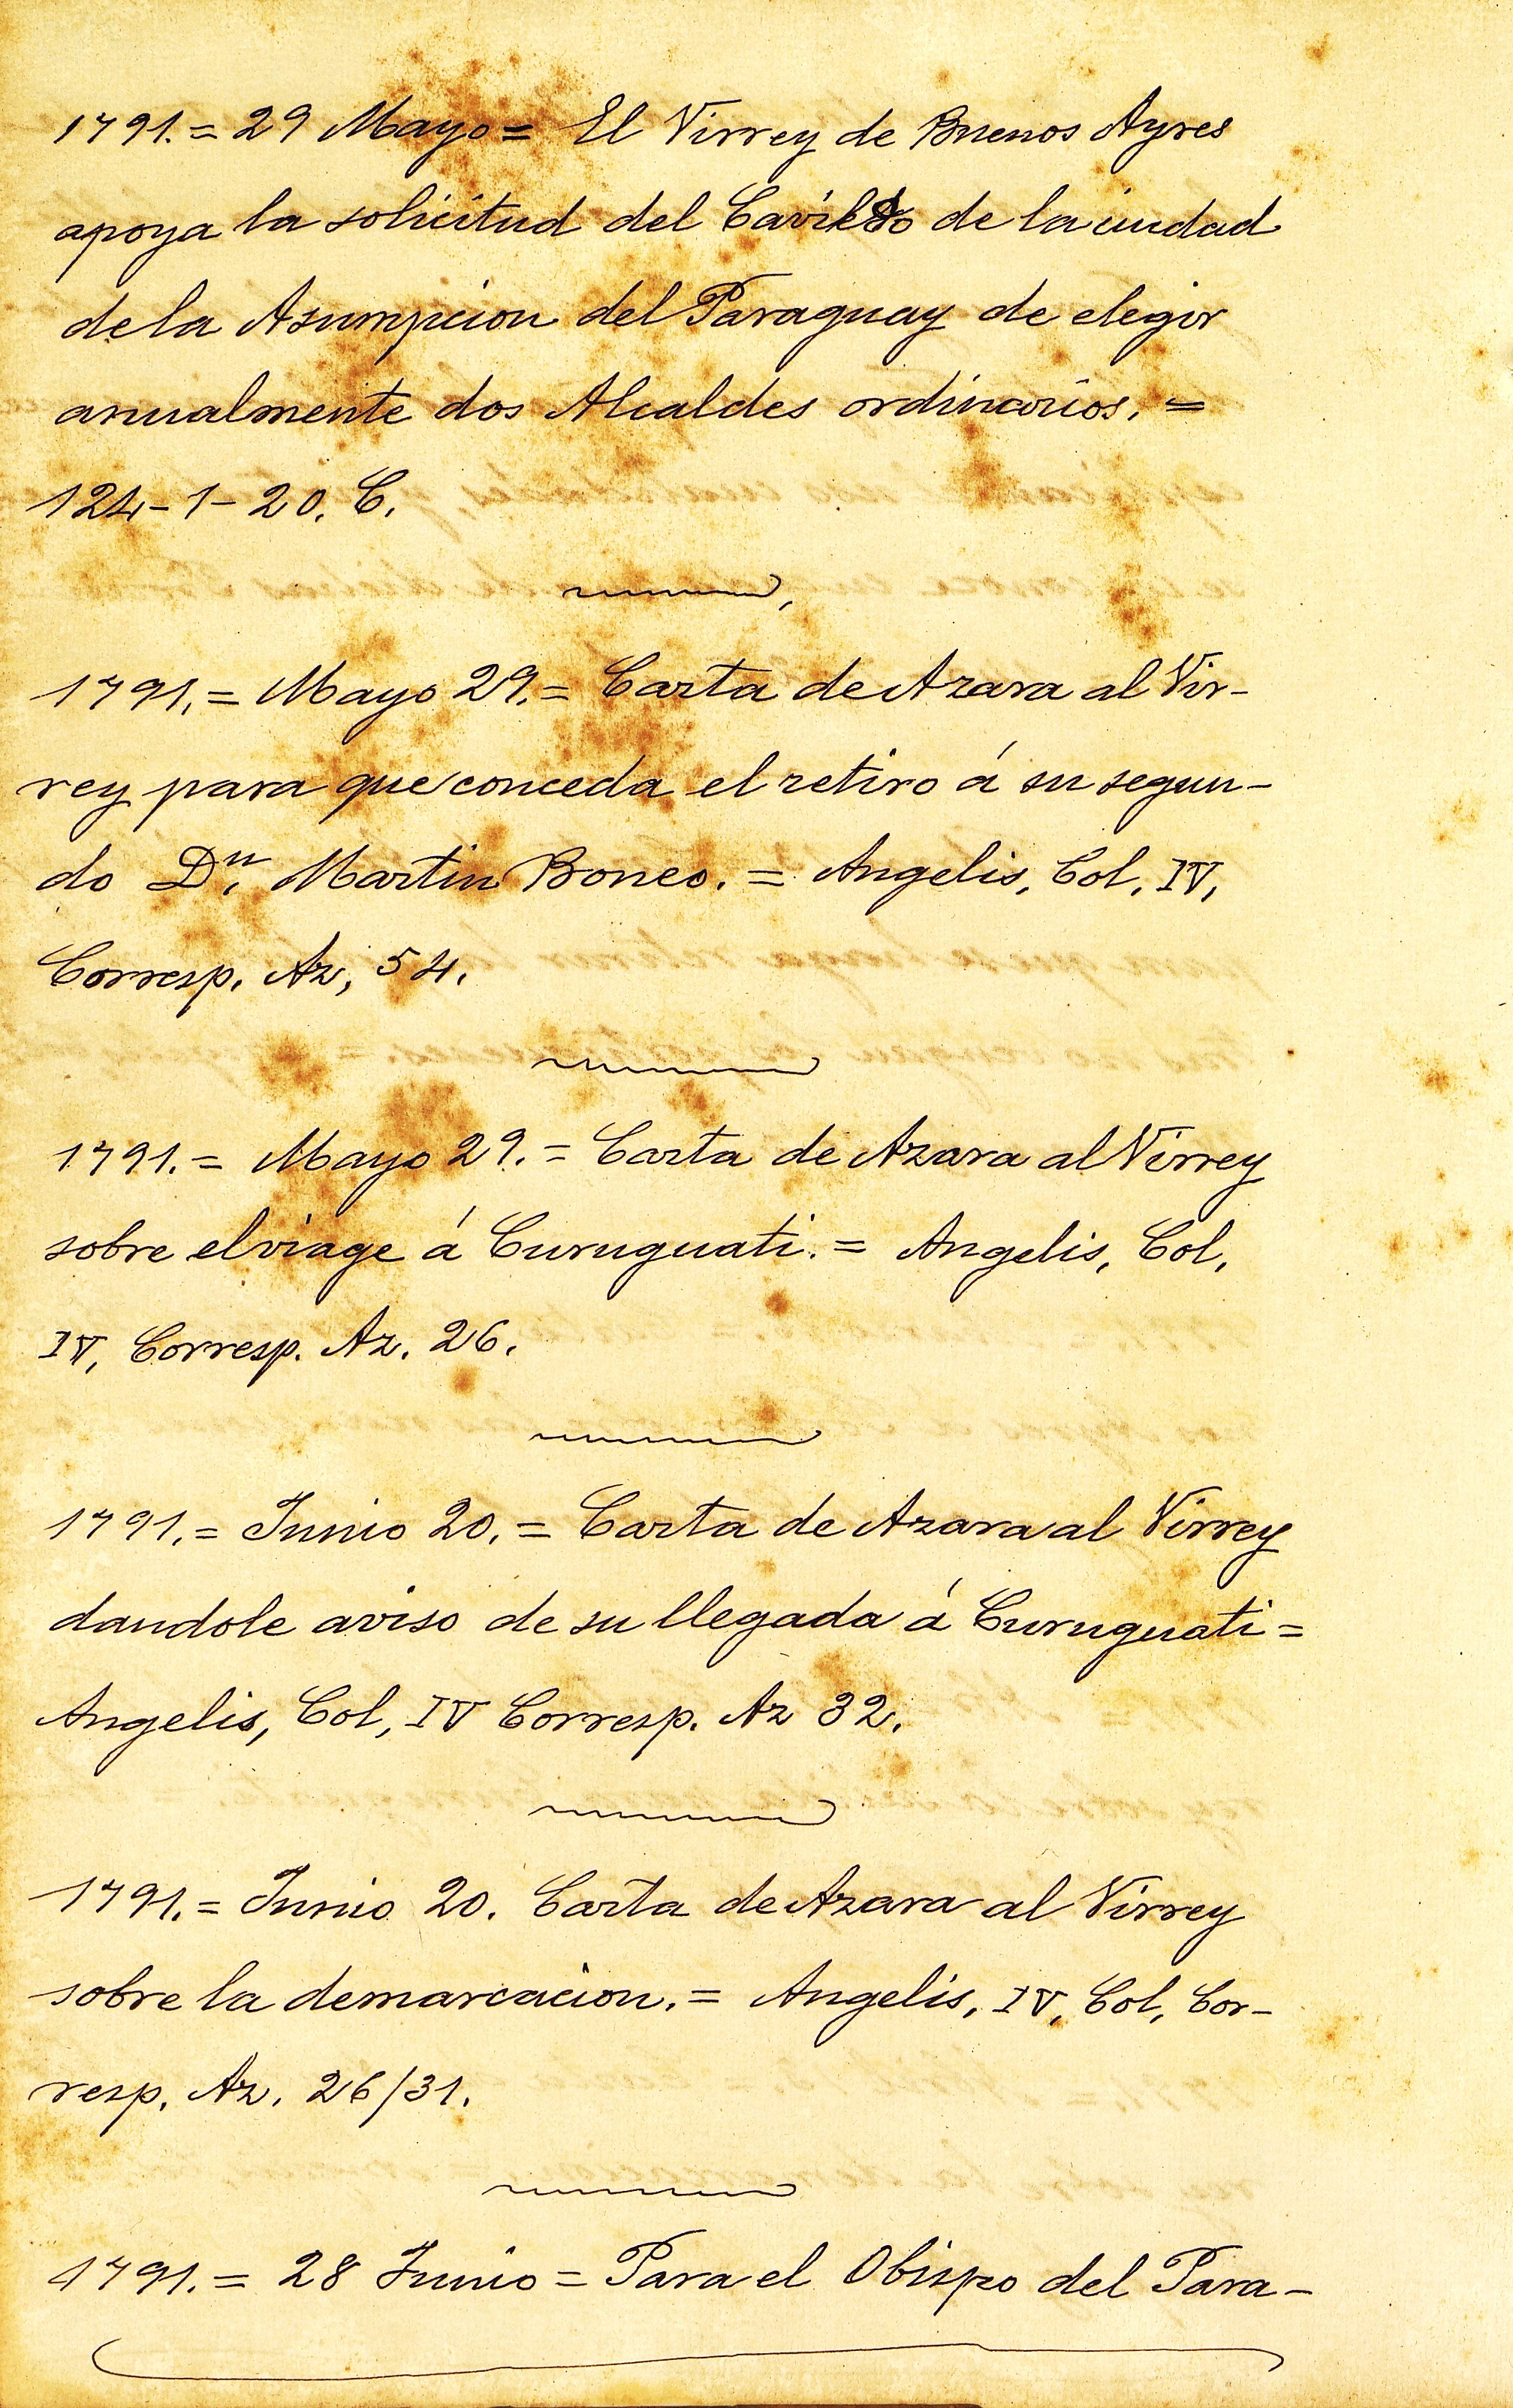 1791.= 29 Mayo = El Virrey de Buenos Ayres
apoya la solicitud del Cavildo de la ciudad
de la Asumpcion del Paraguay de elegir
anualmente dos Alcaldes ordinarios. =
124-1-20. C.
1791.= Mayo 29.= Carta de Azara al Vir-
rey para que conceda el retiro á su segun-
do Dn. Martin Boneo. = Angelis, Col, IV,
Corresp. Az, 54.
1791.= Mayo 29.= Carta de Azara al Virrey
sobre el viage á Curuguati. = Angelis, Col,
IV, Corresp. Az. 26.
1791.= Junio 20.= Carta de Azara al Virrey
dandole aviso de su llegada á Curuguati =
Angelis, Col, IV Corresp. Az 32.
1791.= Junio 20. Carta de Azara al Virrey
sobre la demarcacion.= Angelis, IV, Col, Cor-
resp. Az. 26/31.
1791.= 28 Junio = Para el Obispo del Para-